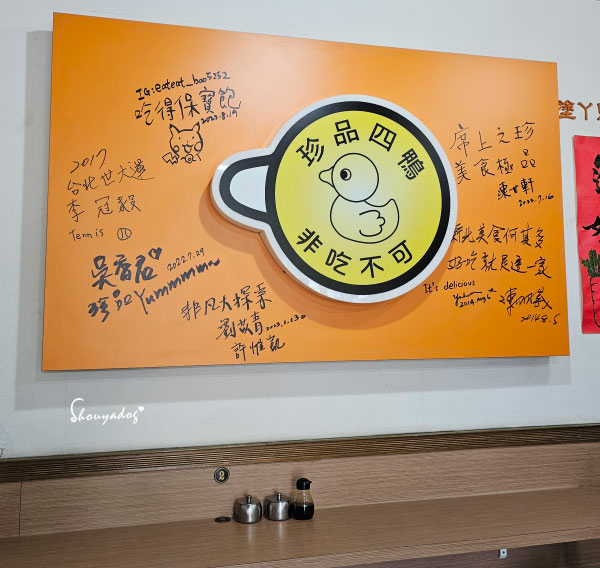 IG:eateat_boo5252
吃得保寶飽
2023.8.19
2017
台北世大運
李冠毅
Tennis
2022.7.29
珍品Yummmmm
非凡大探索
許惟凱
珍品四鴨
非吃不可
席上之珍
美食極品
2022.7.16
新北美食何其多
好吃就是這一家
It's delicious
2014.8.5
Shouyadog
2